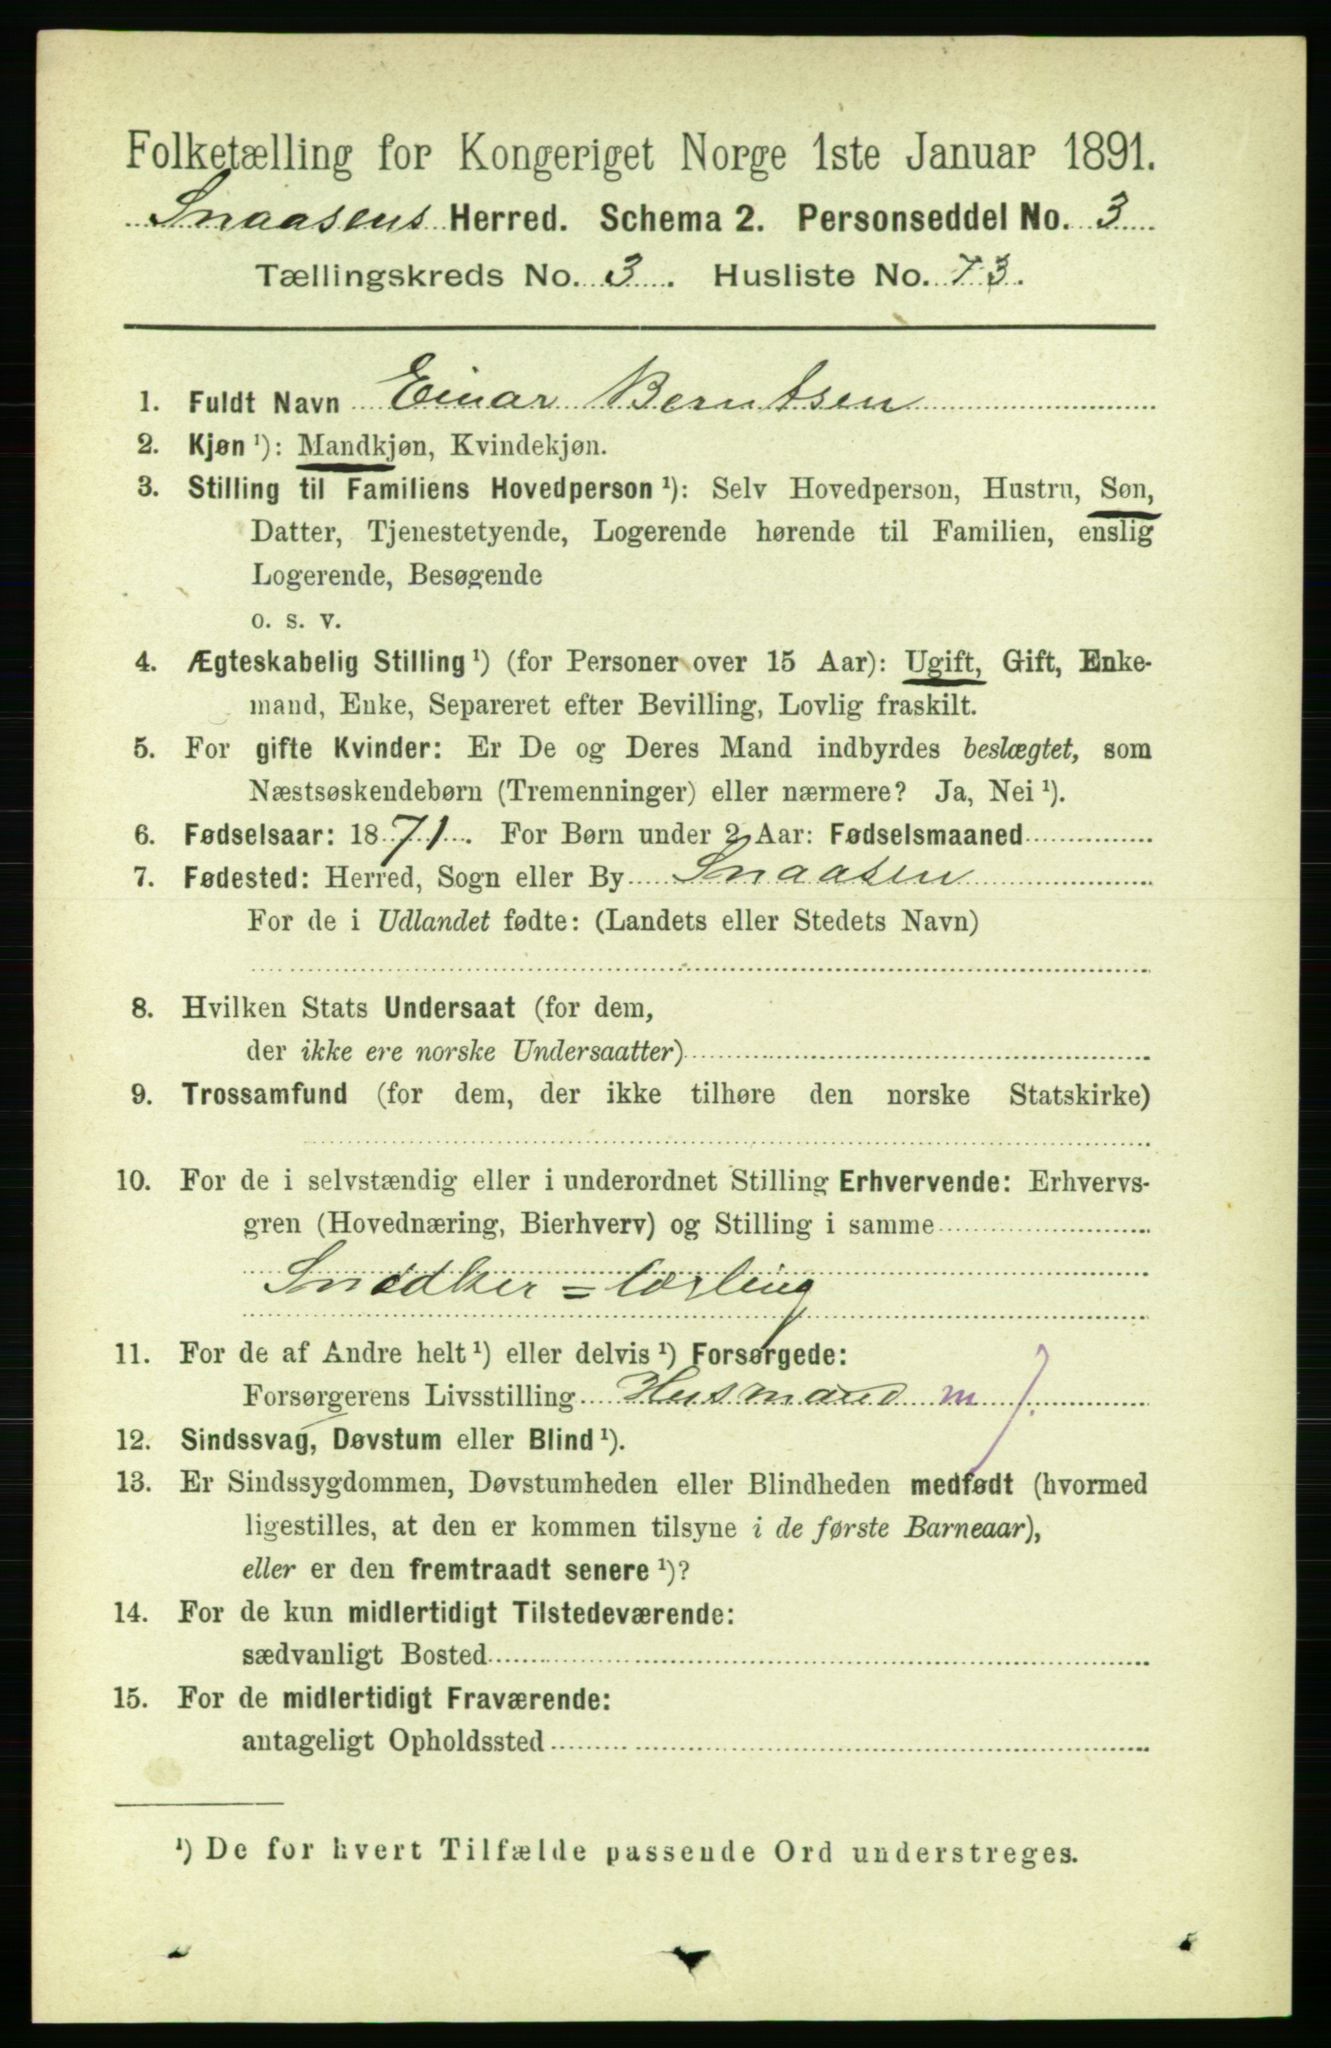 Folketælling for Kongeriget Norge 1ste Januar 1891.
Snaasens Herred. Schema 2. Personseddel No. 3
Tællingskreds No. 3. Husliste No. 73.
1. Fuldt Navn Einar Berntsen
2. Kjøn ¹): Mandkjøn, Kvindekjøn.
3. Stilling til Familiens Hovedperson ¹): Selv Hovedperson, Hustru, Søn,
Datter, Tjenestetyende, Logerende hørende til Familien, enslig
Logerende, Besøgende
o. s. v.
4. Ægteskabelig Stilling ¹) (for Personer over 15 Aar): Ugift, Gift, Enke-
mand, Enke, Separeret efter Bevilling, Lovlig fraskilt.
5. For gifte Kvinder: Er De og Deres Mand indbyrdes beslægtet, som
Næstsøskendebørn (Tremenninger) eller nærmere? Ja, Nei ¹).
6. Fødselsaar: 1871. For Børn under 2 Aar: Fødselsmaaned
7. Fødested: Herred, Sogn eller By Snaasen
For de i Udlandet fødte: (Landets eller Stedets Navn)
8. Hvilken Stats Undersaat (for dem,
der ikke ere norske Undersaatter)
9. Trossamfund (for dem, der ikke tilhøre den norske Statskirke)
10. For de i selvstændig eller i underordnet Stilling Erhvervende: Erhvervs-
gren (Hovednæring, Bierhverv) og Stilling i samme
Snedker = lærling
11. For de af Andre helt ¹) eller delvis ¹) Forsørgede:
Forsørgerens Livsstilling Husmand m j.
12. Sindssvag, Døvstum eller Blind ¹).
13. Er Sindssygdommen, Døvstumheden eller Blindheden medfødt (hvormed
ligestilles, at den er kommen tilsyne i de første Barneaar),
eller er den fremtraadt senere ¹)?
14. For de kun midlertidigt Tilstedeværende:
sædvanligt Bosted
15. For de midlertidigt Fraværende:
antageligt Opholdssted
¹) De for hvert Tilfælde passende Ord understreges.